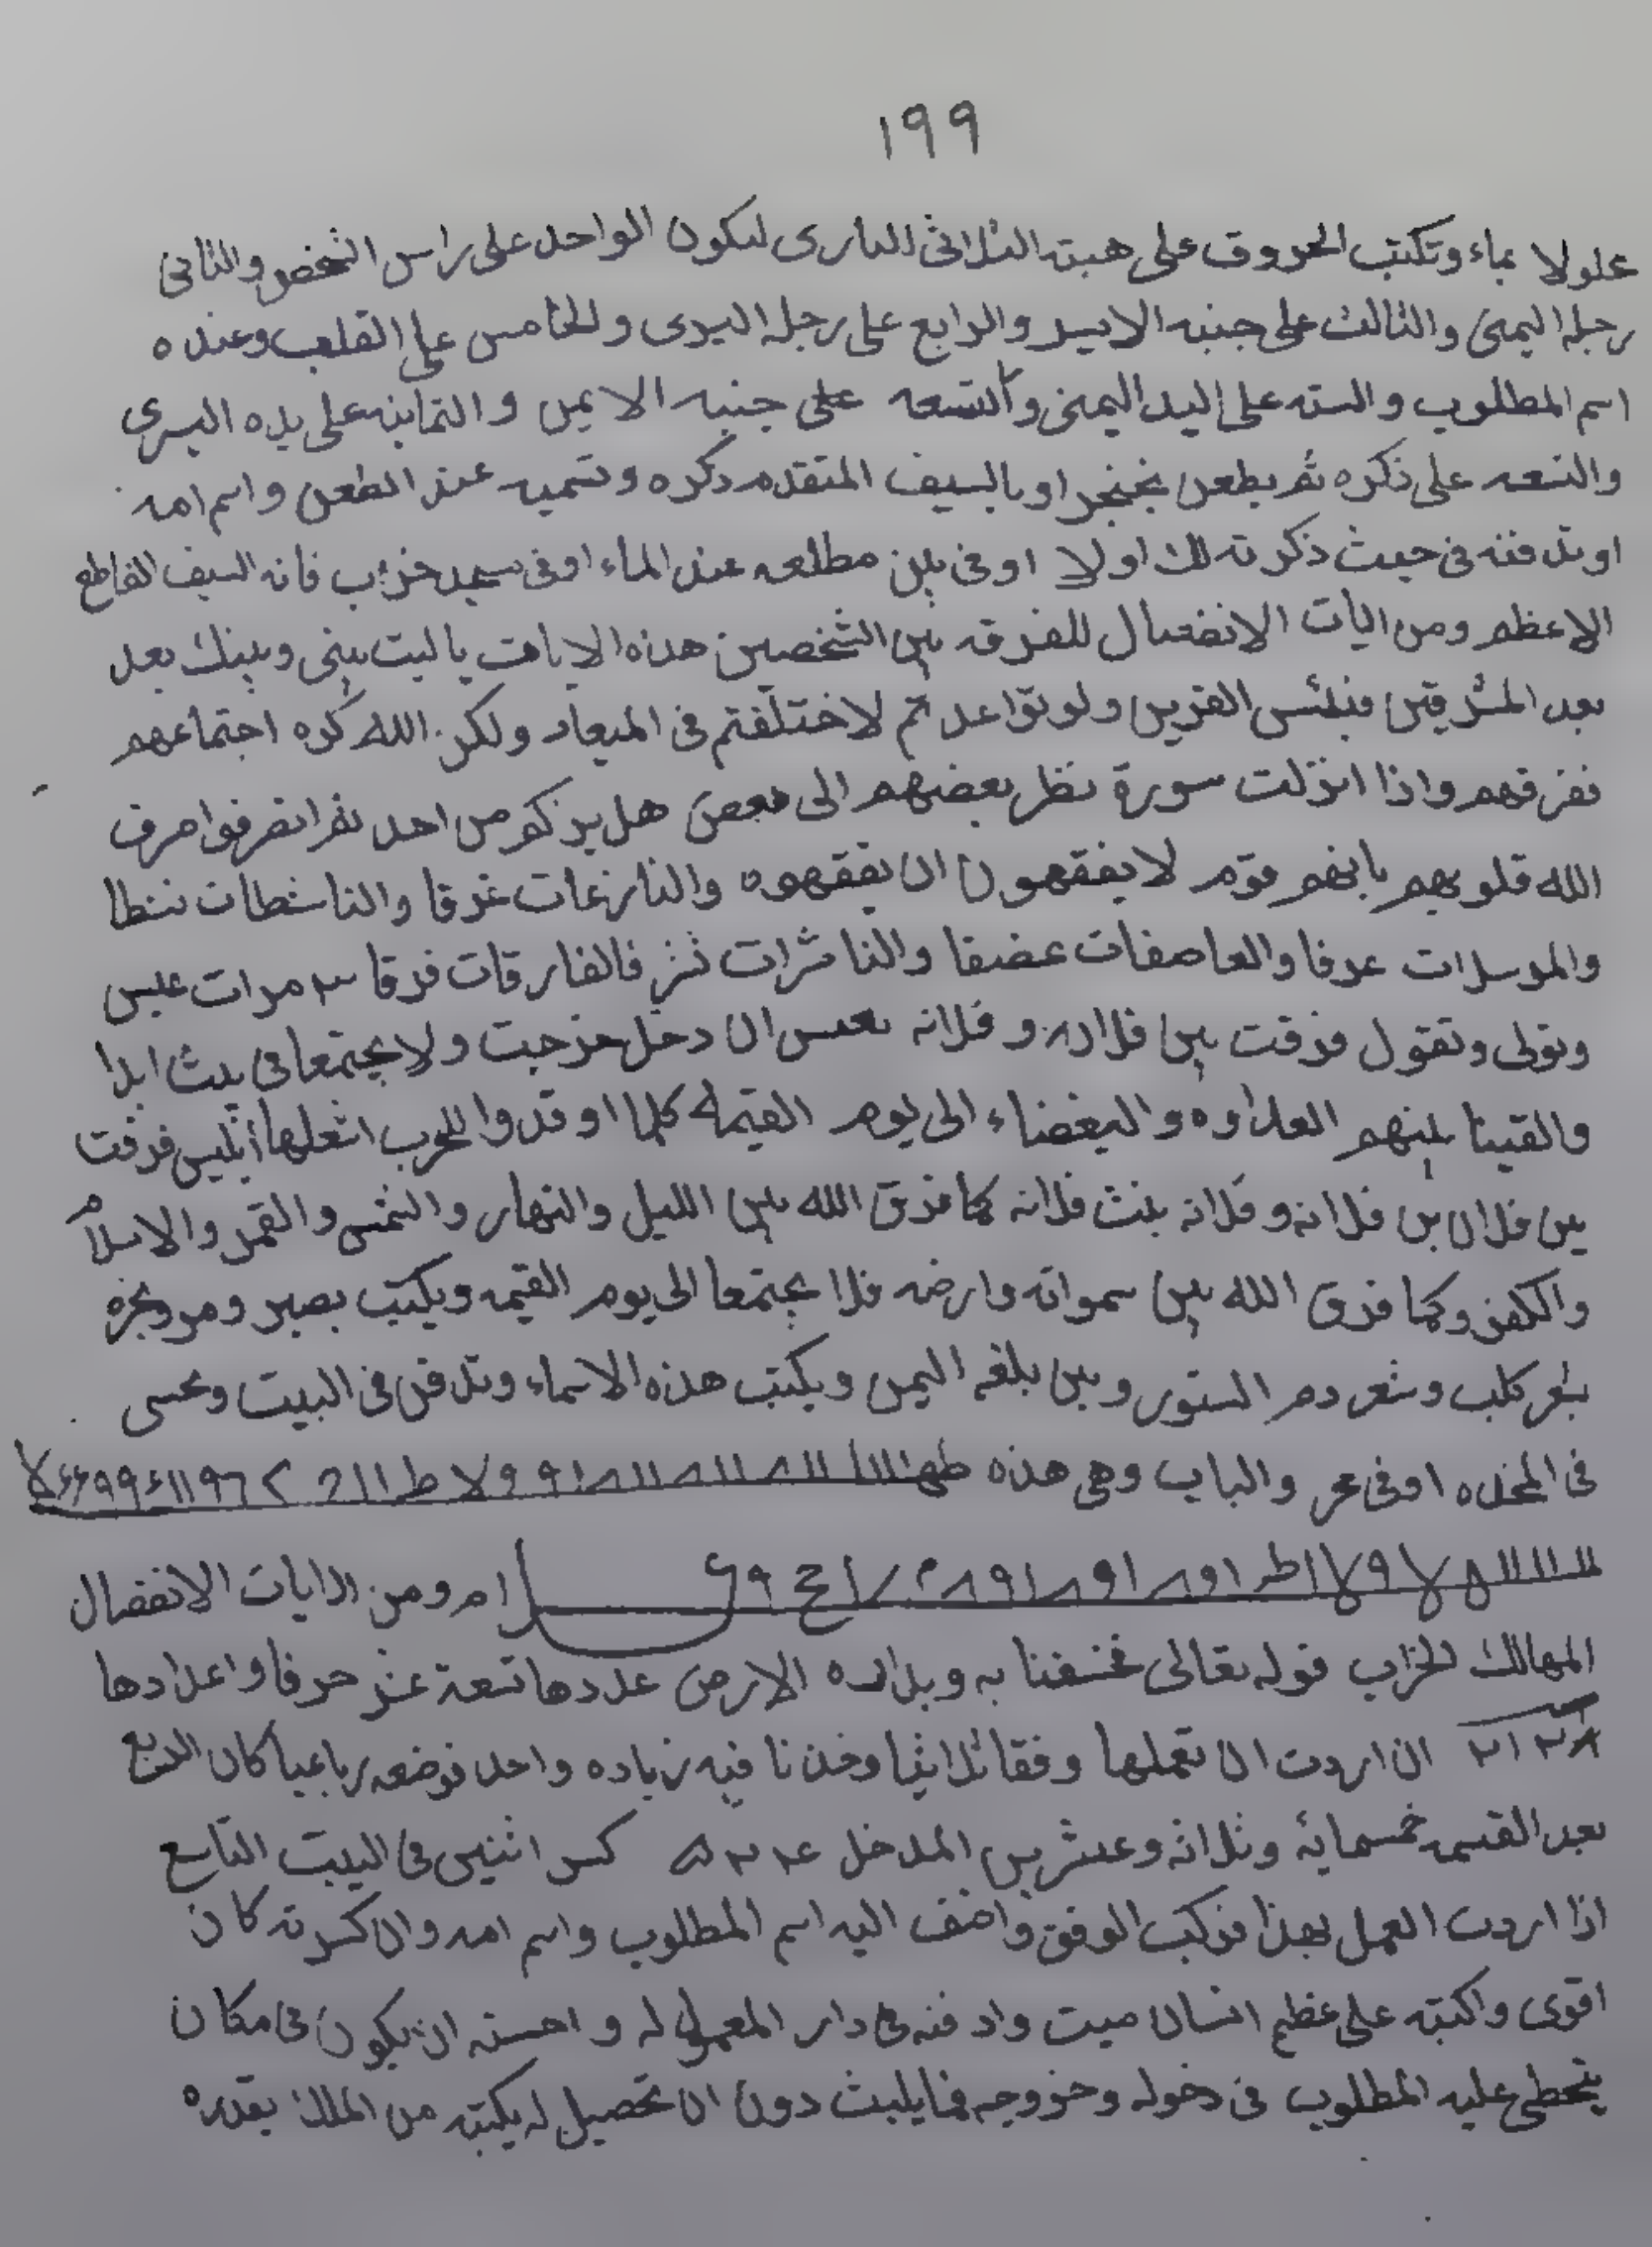 ١٩٩
علولا بماء وتكتب الحروف على هيئة الثلاثى النارى ليكون الواحد على راس الشخص والثانى
رجله اليمنى والثالث على جنبه الايسر والرابع على رجله اليسرى والخامس على القلب وعنده
اسم المطلوب والسته على اليد اليمنى والتسعه على جنبه الايمن والثمانيه على يده اليسرى
والتسعه على ذكره ثم يطعن بخنجر او بالسيف المتقدم ذكره وتسميه عند الطعن واسم امه
او تدفنه فى حيث ذكرته لك اولا او فى مطلعه عند الماء او فى خراب فانه السيف القاطع
الاعظم ومن ايات الانفصال للفرقه بين الشخصين هذه الايات ياليت بينى وبينك بعد
بعد المشرقين فبئس القرين ولو تواعدتم لاختلفتم فى الميعاد ولكن الله كره اجتماعهم
نفرقهم واذا انزلت سورة نظر بعضهم الى بعض هل يركم من احد ثم انصرفوا صرف
الله قلوبهم بانهم قوم لا يفقهون ان يفقهوه والنازعات غرقا والناشطات نشطا
والمرسلات عرفا والعاصفات عصفا والناشرات نشر فالفارقات فرقا ٣ مرات عبس
وتولى وتقول فرقت بين فلان وفلانه ان دخل خرجت ولا يجتمعا فى بيت ابدا
والقينا بينهم العداوه والبغضاء الى يوم القيمة كلما اوقدوا للحرب اشعلها ابليس فرقت
بين فلان بن فلانه وفلانه بنت فلانه كما فرق الله بين الليل والنهار والشمس والقمر والاسلام
والكفر وكما فرق الله بين سمواته وارضه فلا يجتمعا الى يوم القيمه ويكتب بصبر ومر
كلب وشعر دم السنور وبين اليمن ويكتب هذه الاسماء وتدفن فى البيت وتحسى
فى المخده او فى والباب وهى هذه
ام ومن ايات الانفصال
المهالك للخراب قوله تعالى فخسفنا به وبداره الارض عددها تسعة عشر حرفا واعدادها
ان اردت ان تعملها وفقا ثلاثيا وخذنا فيه زياده واحد فوضعه رباعيا كان الربع
بعد القسمه خمسمايه وثلاثه وعشرين المدخل كسر اثنين فى البيت التاسع
اذا اردت العمل بهذا فركب الوفق واضف اليه اسم المطلوب واسم امه وان كسرته كان
اقوى واكتبه على عظم انسان ميت وادفنه فى دار المعمول له واحسنه ان يكون فى مكان
يتخطى عليه المطلوب فى دخوله وخروجه فما يلبث دون ان تحصيل له يكتبه من الملك بقدره